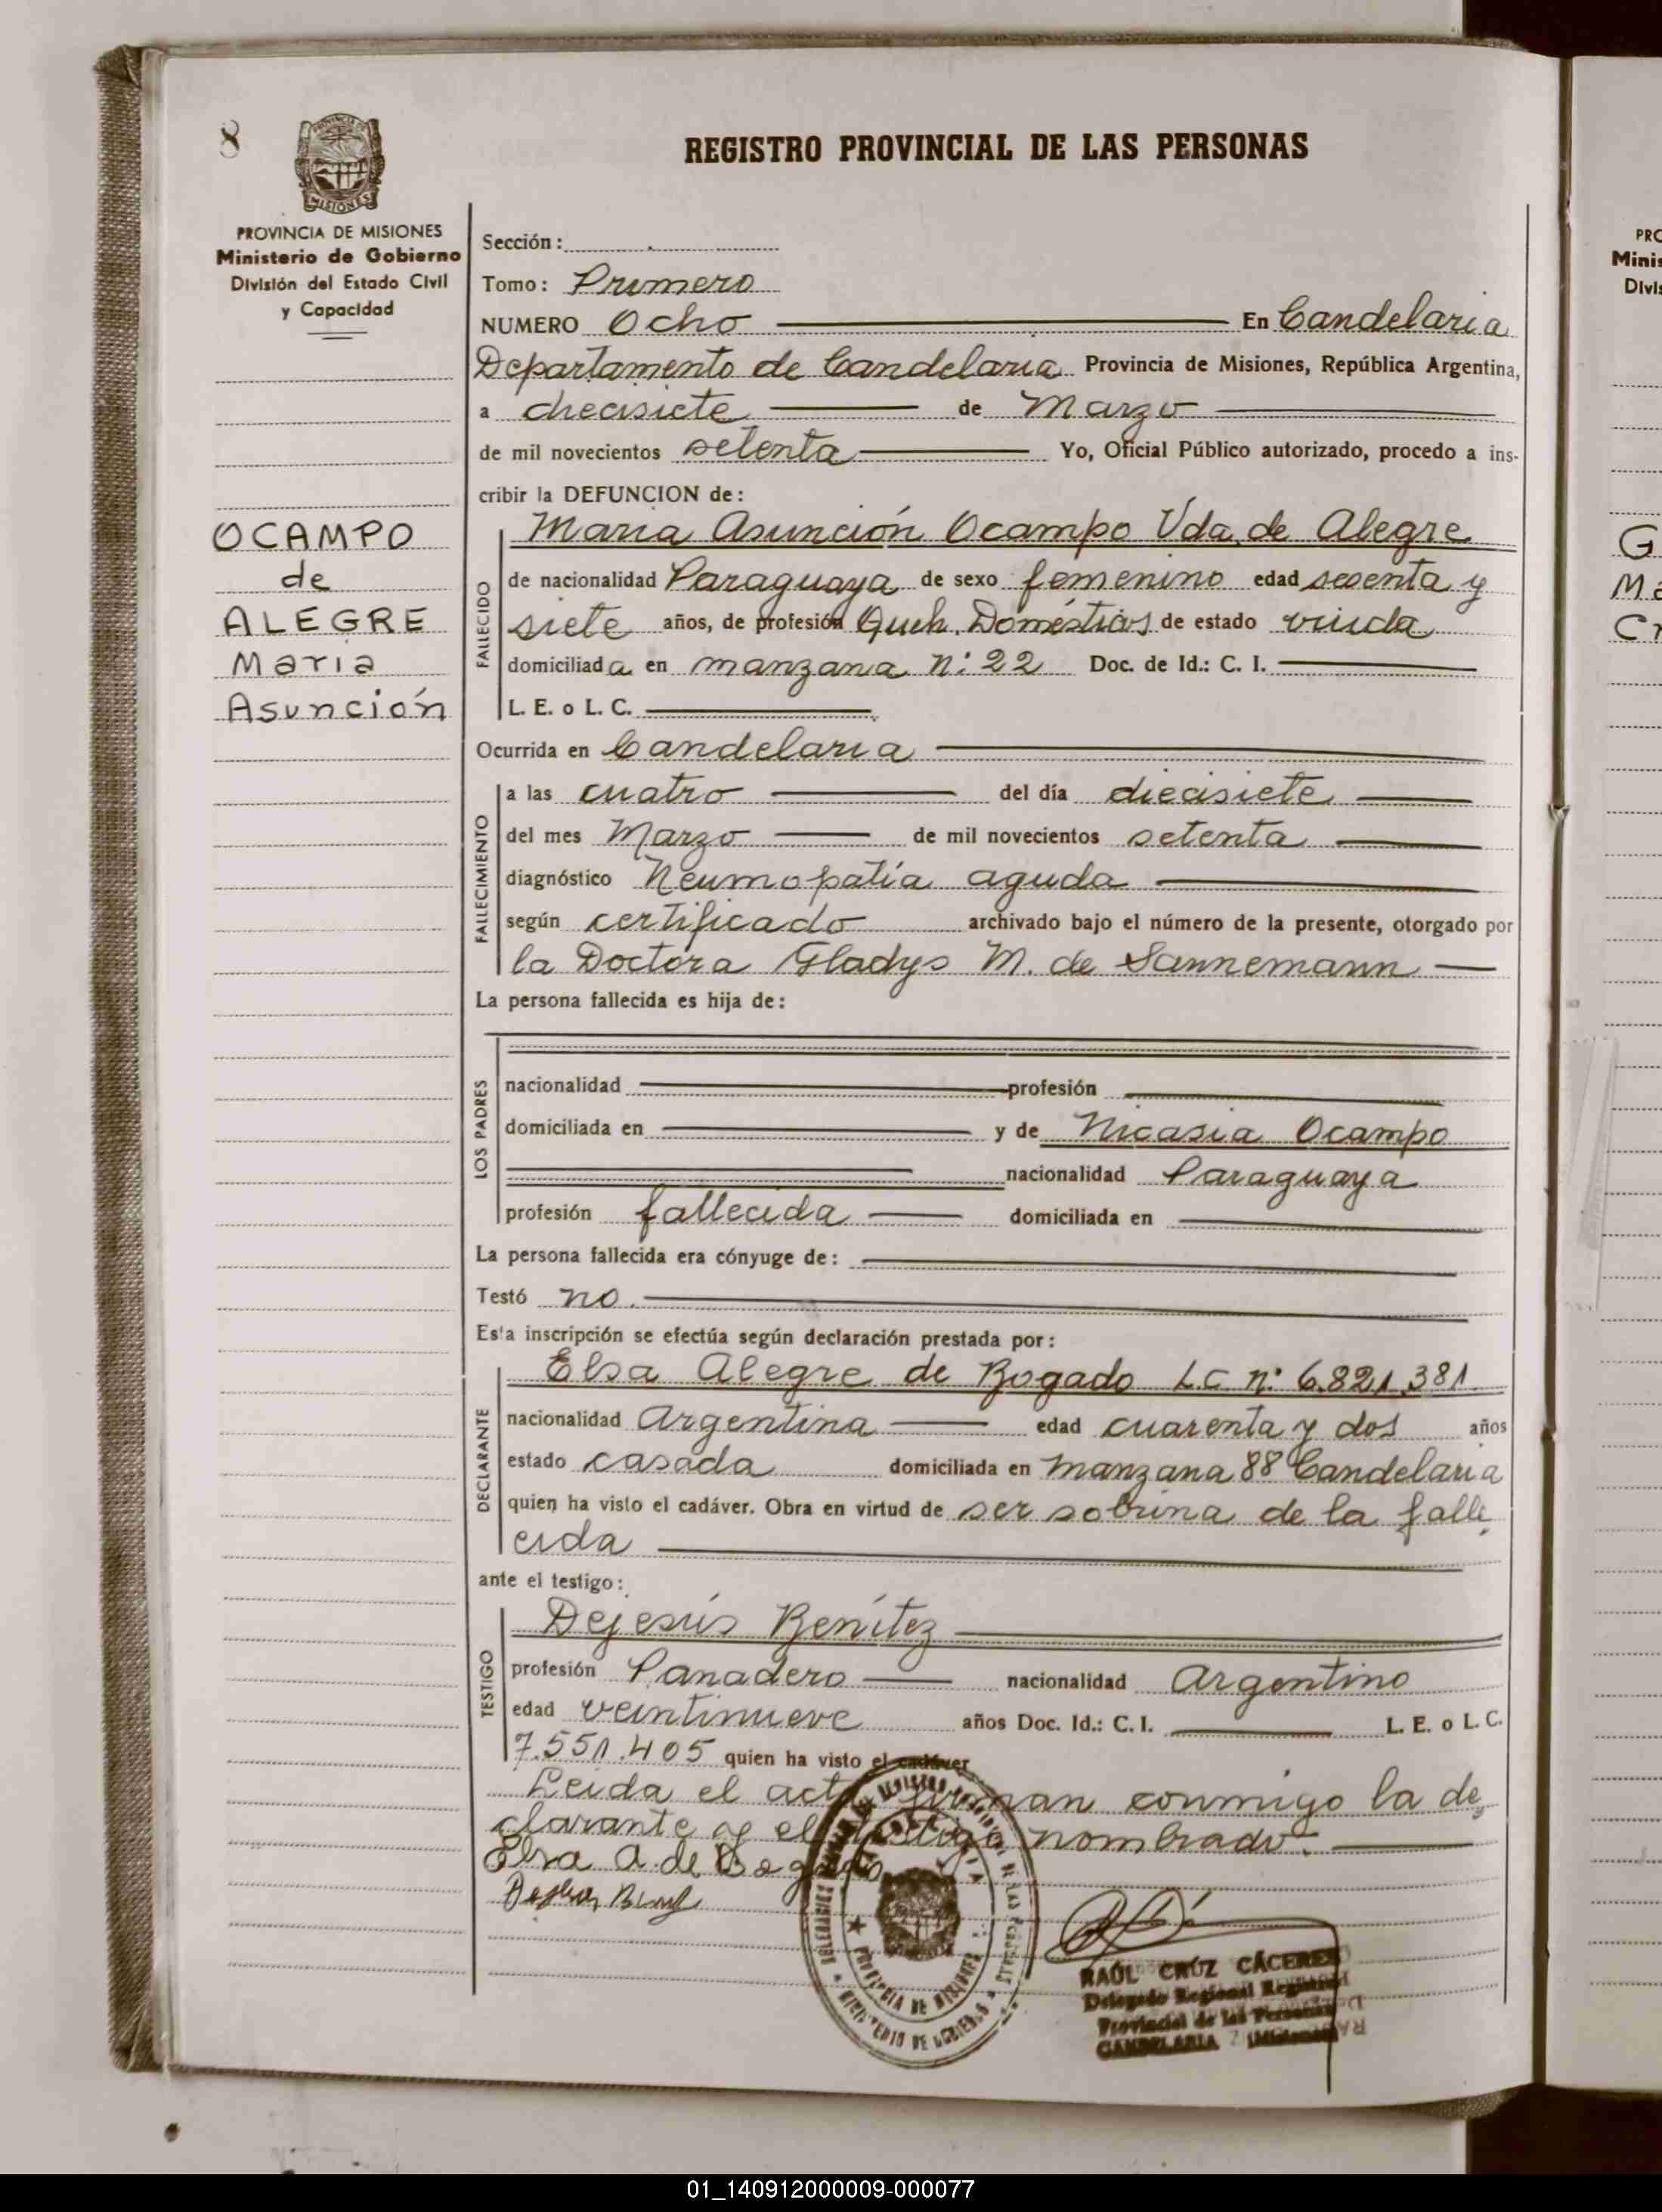 8
PROVINCIA DE MISIONES
Ministerio de Gobierno
División del Estado Civil
y Capacidad
OCAMPO
de
ALEGRE
Maria
Asunción
REGISTRO PROVINCIAL DE LAS PERSONAS
Sección:
Tomo: Primero
NUMERO Ocho En Candelaria
Departamento de Candelaria Provincia de Misiones, República Argentina,
a diecisiete de Marzo
de mil novecientos setenta Yo, Oficial Público autorizado, procedo a ins-
cribir la DEFUNCION de:
FALLECIDO
Maria Asunción Ocampo Vda. de Alegre
de nacionalidad Paraguaya de sexo femenino edad sesenta y
siete años, de profesión Queh. Domésticos de estado viuda
domiciliada en manzana n: 22 Doc. de Id.: C. I.
L. E. o L. C.
Ocurrida en Candelaria
FALLECIMIENTO
a las cuatro del día diecisiete
del mes Marzo de mil novecientos setenta
diagnóstico Neumopatía aguda
según certificado archivado bajo el número de la presente, otorgado por
la Doctora Gladys M. de Sannemann
La persona fallecida es hija de:
LOS PADRES
nacionalidad profesión
domiciliada en y de Nicasia Ocampo
nacionalidad Paraguaya
profesión fallecida domiciliada en
La persona fallecida era cónyuge de:
Testó no.
Esta inscripción se efectúa según declaración prestada por:
DECLARANTE
Elsa Alegre de Bogado L.C n: 6.821.381
nacionalidad Argentina edad cuarenta y dos años
estado casada domiciliada en manzana 88 Candelaria
quien ha visto el cadáver. Obra en virtud de ser sobrina de la falle
cida
ante el testigo:
TESTIGO
Dejesús Benítez
profesión Panadero nacionalidad Argentino
edad veintinueve años Doc. Id.: C. I. L. E. o L. C.
7.551.405 quien ha visto el cadáver
Leida el acta firman conmigo la de
clarante y el testigo nombrado.
Elsa A. de Bogado
RAÚL CRÚZ CÁCERES
Delegado Regional Registro
Provincial de las Personas
CANDELARIA (Misiones)
PROVINCIA DE MISIONES
MINISTERIO DE GOBIERNO
PRO
Minis
Divis
G
Ma
Cr
01_140912000009-000077